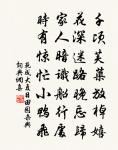 千頃芙蕖放棹嬉
花深迷路晚忘歸
家人暗識船行處
時有驚忙小鴨飛
范成大夏日田園雜興
詞典網集